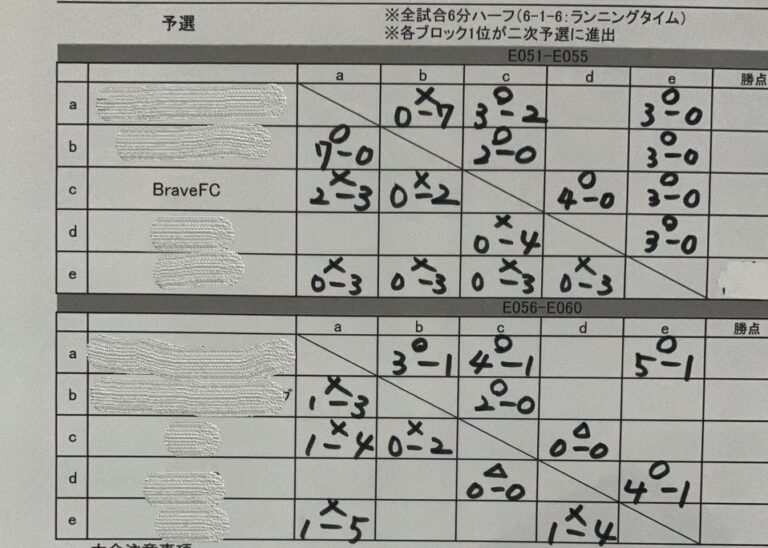 予選
※全試合6分ハーフ(6-1-6:ランニングタイム)
※各ブロック1位が二次予選に進出
E051-E055
a b c d e 勝点
a × 0-7 ○ 3-2 ○ 3-0
b ○ 7-0 ○ 2-0 ○ 3-0
c BraveFC × 2-3 × 0-2 ○ 4-0 ○ 3-0
d × 0-4 ○ 3-0
e × 0-3 × 0-3 × 0-3 × 0-3
E056-E060
a b c d e 勝点
a ○ 3-1 ○ 4-1 ○ 5-1
b × 1-3 ○ 2-0
c × 1-4 × 0-2 △ 0-0
d △ 0-0 ○ 4-1
e × 1-5 × 1-4